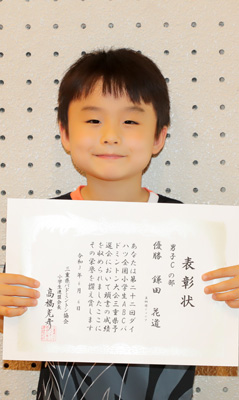 表彰状
男子Cの部
優勝 鎌田 晃道
あなたは第二十二回ダイ
ハツ全国小学生ABCバ
ドミントン大会三重県予
選会において頭書の成績
を収められましたここに
その栄誉を讃え賞します
三重県バドミントン協会
小学生連盟会長